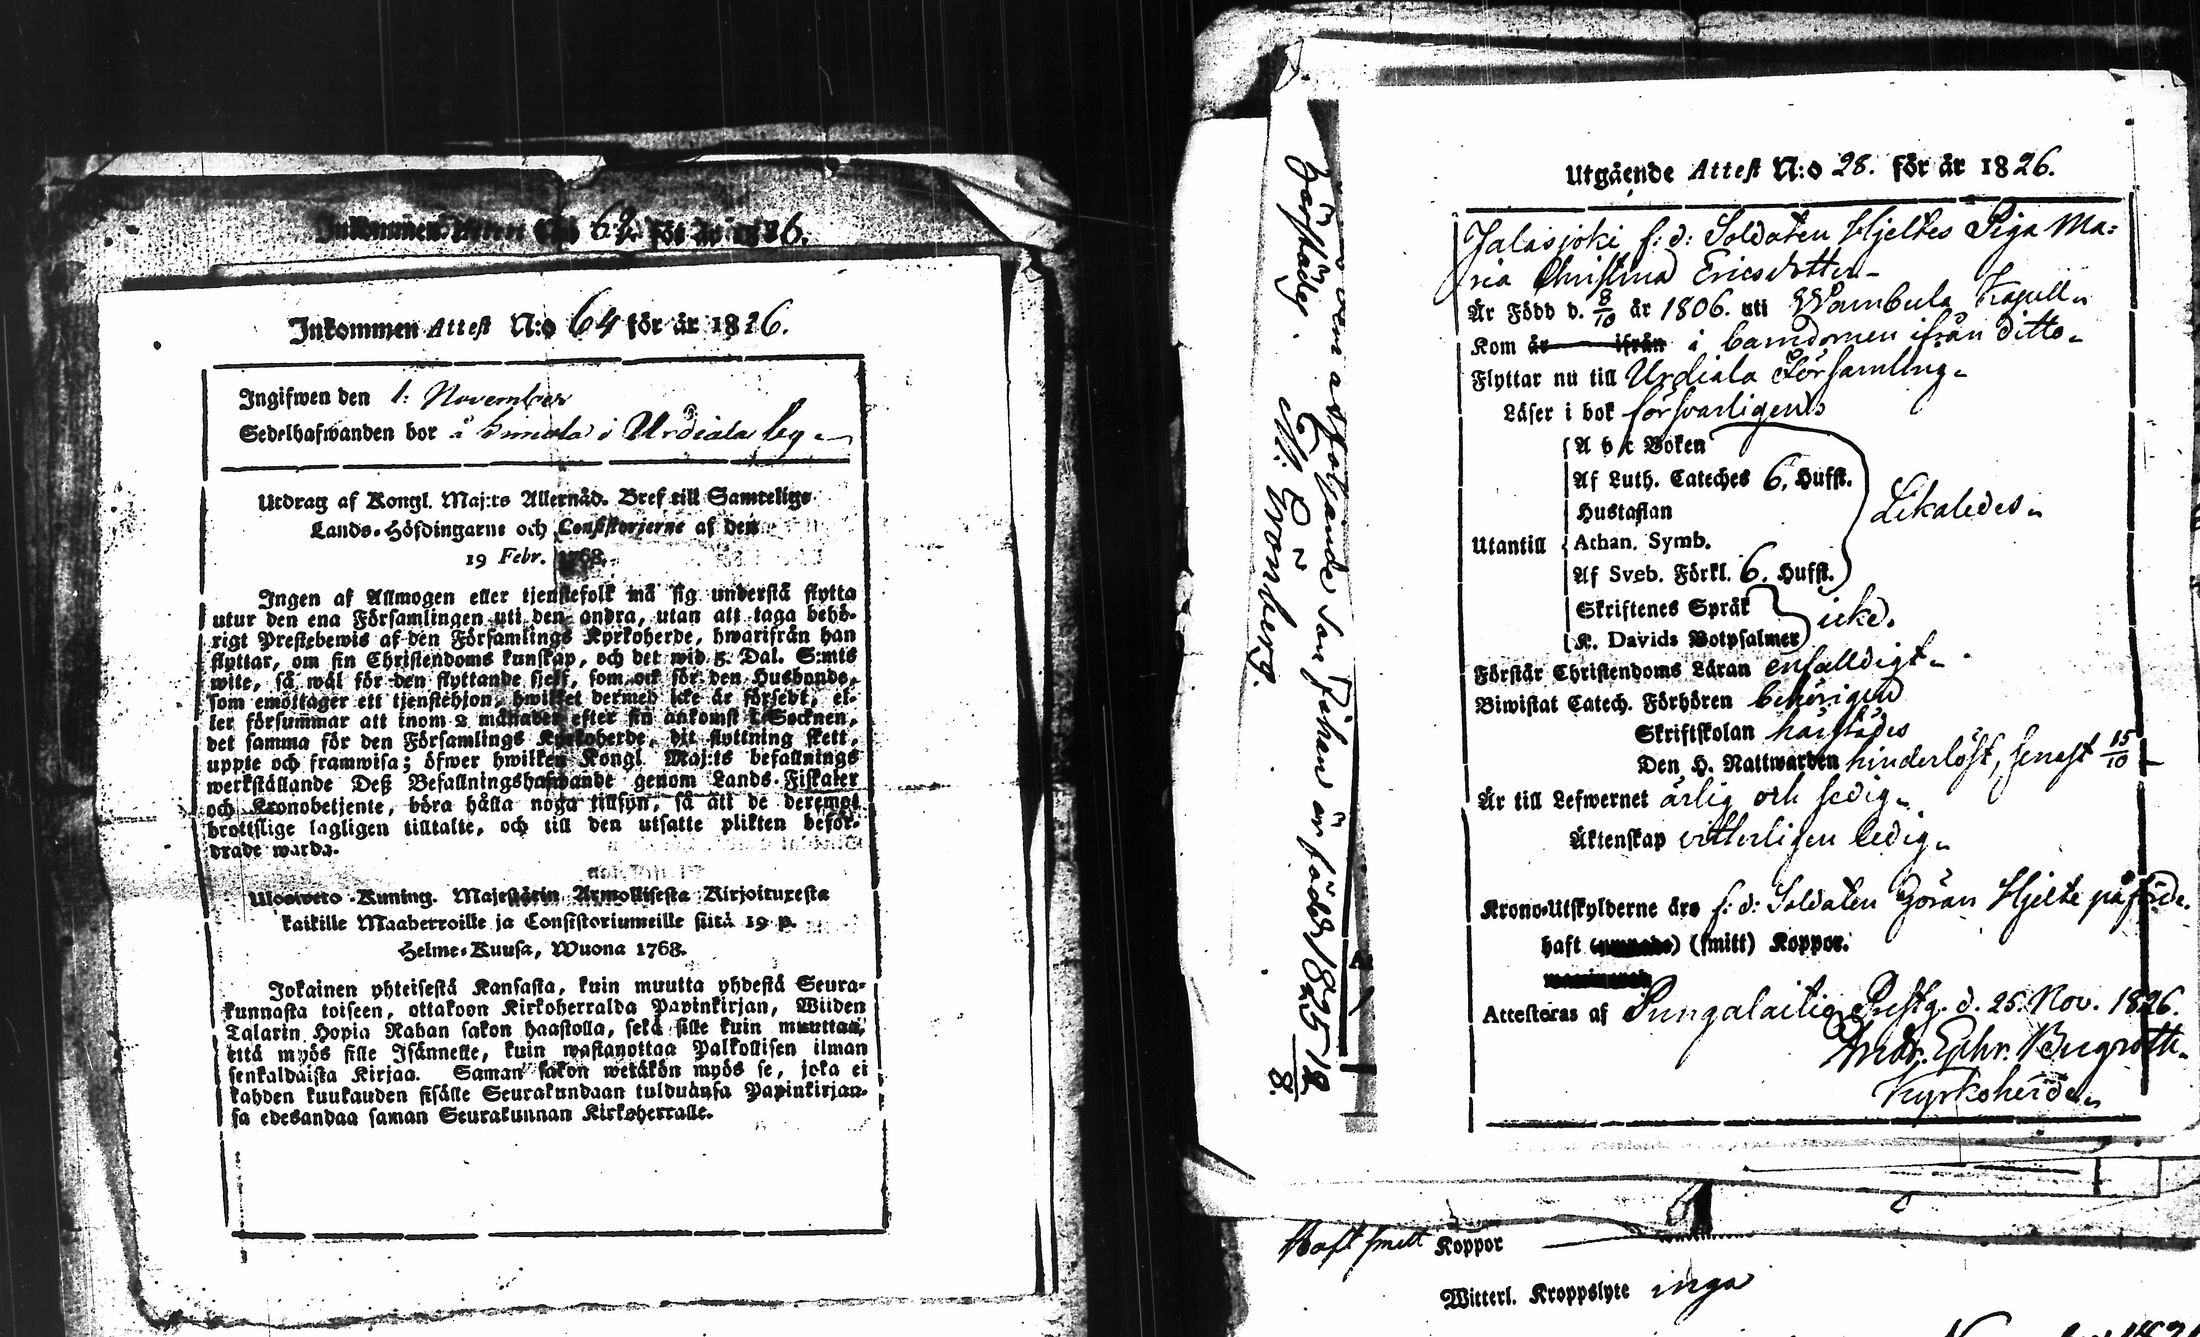 Inkommen Attest N:o 62 för år 1826.
Inkommen Attest N:o 64 för år 1826.
Ingifwen den 1. November
Sedelhafwanden bor å i Urdiala by
Utdrag af Kongl. Maj:ts Allernåd. Bref till Samtelige
Lands-Höfdingarne och Consistorierne af den
19 Febr. 1768.
Ingen af Allmogen eller tjenstefolk må sig understå flytta
utur den ena Församlingen uti den andra, utan att taga behö-
rigt Prestebewis af den Församlings Kyrkoherde, hwarifrån han
flyttar, om sin Christendoms kunskap, och det wid 5. Dal. S:mts
wite, så wäl för den flyttande sjelf, som ock för den Husbonde,
som emottager ett tjenstehjon, hwilket dermed icke är försedt, el-
ler försummar att inom 2 månader efter sin ankomst i Socknen,
det samma för den Församlings Kyrkoherde, dit flyttning skett,
uppte och framwisa; öfwer hwilken Kongl. Maj:ts befallnings
werkställande Deß Befallningshafwande genom Lands-Fiskaler
och Kronobetjente, böra hålla noga tillsyn, så att de deremot
brottslige lagligen tilltalte, och till den utsatte plikten befor-
drade warda.
Ulosweto Kuning. Majestätin Armollisesta Kirjoituxesta
kaikille Maaherroille ja Consistoriumeille siitä 19 p.
Helme-Kuusa, Wuona 1768.
Jokainen yhteisestä Kansasta, kuin muutta yhdestä Seura-
kunnasta toiseen, ottakoon Kirkoherralda Papinkirjan, Wiiden
Talarin Hopia Rahan sakon haastolla, sekä sille kuin muuttaa,
että myös sille Isännelle, kuin wastanottaa Palkollisen ilman
senkaldaista Kirjaa. Saman sakon wetäkön myös se, joka ei
kahden kuukauden sisälle Seurakundaan tulduansa Papinkirjaan-
sa edesandaa saman Seurakunnan Kirkoherralle.
son Johan är född 1825 12/8.
härstädes. M. Cronberg.
Utgående Attest N:o 28. för år 1826.
Jalasjoki f: d: Soldaten Hjeltes Piga Ma:
ria Christina Ericsdotter
Är Född d. 8/10 år 1806. uti Wambula Kapell
Kom år ifrån i barndomen ifrån ditto
Flyttar nu till Urdiala Församling
Läser i bok försvarligen
A b c Boken
Af Luth. Cateches 6. Hufst.
Hustaflan
Likaledes
Utantill Athan. Symb.
Af Sveb. Förkl. 6. Hufst.
Skriftenes Språk
icke.
K. Davids Botpsalmer
Förstår Christendoms Läran enfalldigt
Biwistat Catech. Förhören behörigen
Skriftskolan härstädes
Den H. Nattwarden hinderlöst, senast 15/10
Är till Lefwernet ärlig och sedig
Äktenskap vitterligen ledig
Krono-Utskylderne äro f: d: Soldaten Göran Hjelte påförde.
haft (smitt) Koppor.
Attesteras af Pungalaitio Prestg. d. 25. Nov. 1826.
Andr. Ephr. Bergroth
Kyrkoherde
Haft smitt Koppor
Witterl. Kroppslyte inga